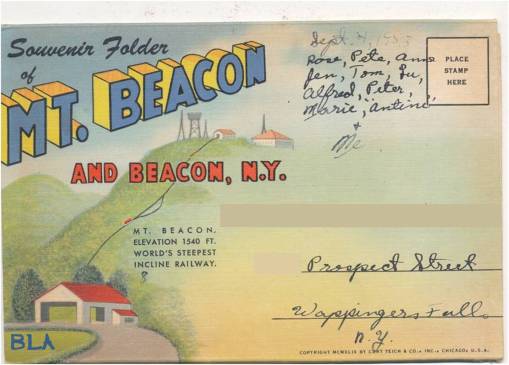 Souvenir Folder
of
MT. BEACON
AND BEACON, N.Y.
MT. BEACON.
ELEVATION 1540 FT.
WORLD'S STEEPEST
INCLINE RAILWAY.
BLA
Sept. 4, 
Rose, Pete, Anna
Jen, Tom, Lu,
Alfred, Peter,
Marie, Antino
+
Me
PLACE
STAMP
HERE
Prospect Street
Wappingers Falls
N.Y.
COPYRIGHT MCMXLIX BY CURT TEICH & CO., INC., CHICAGO, U.S.A.